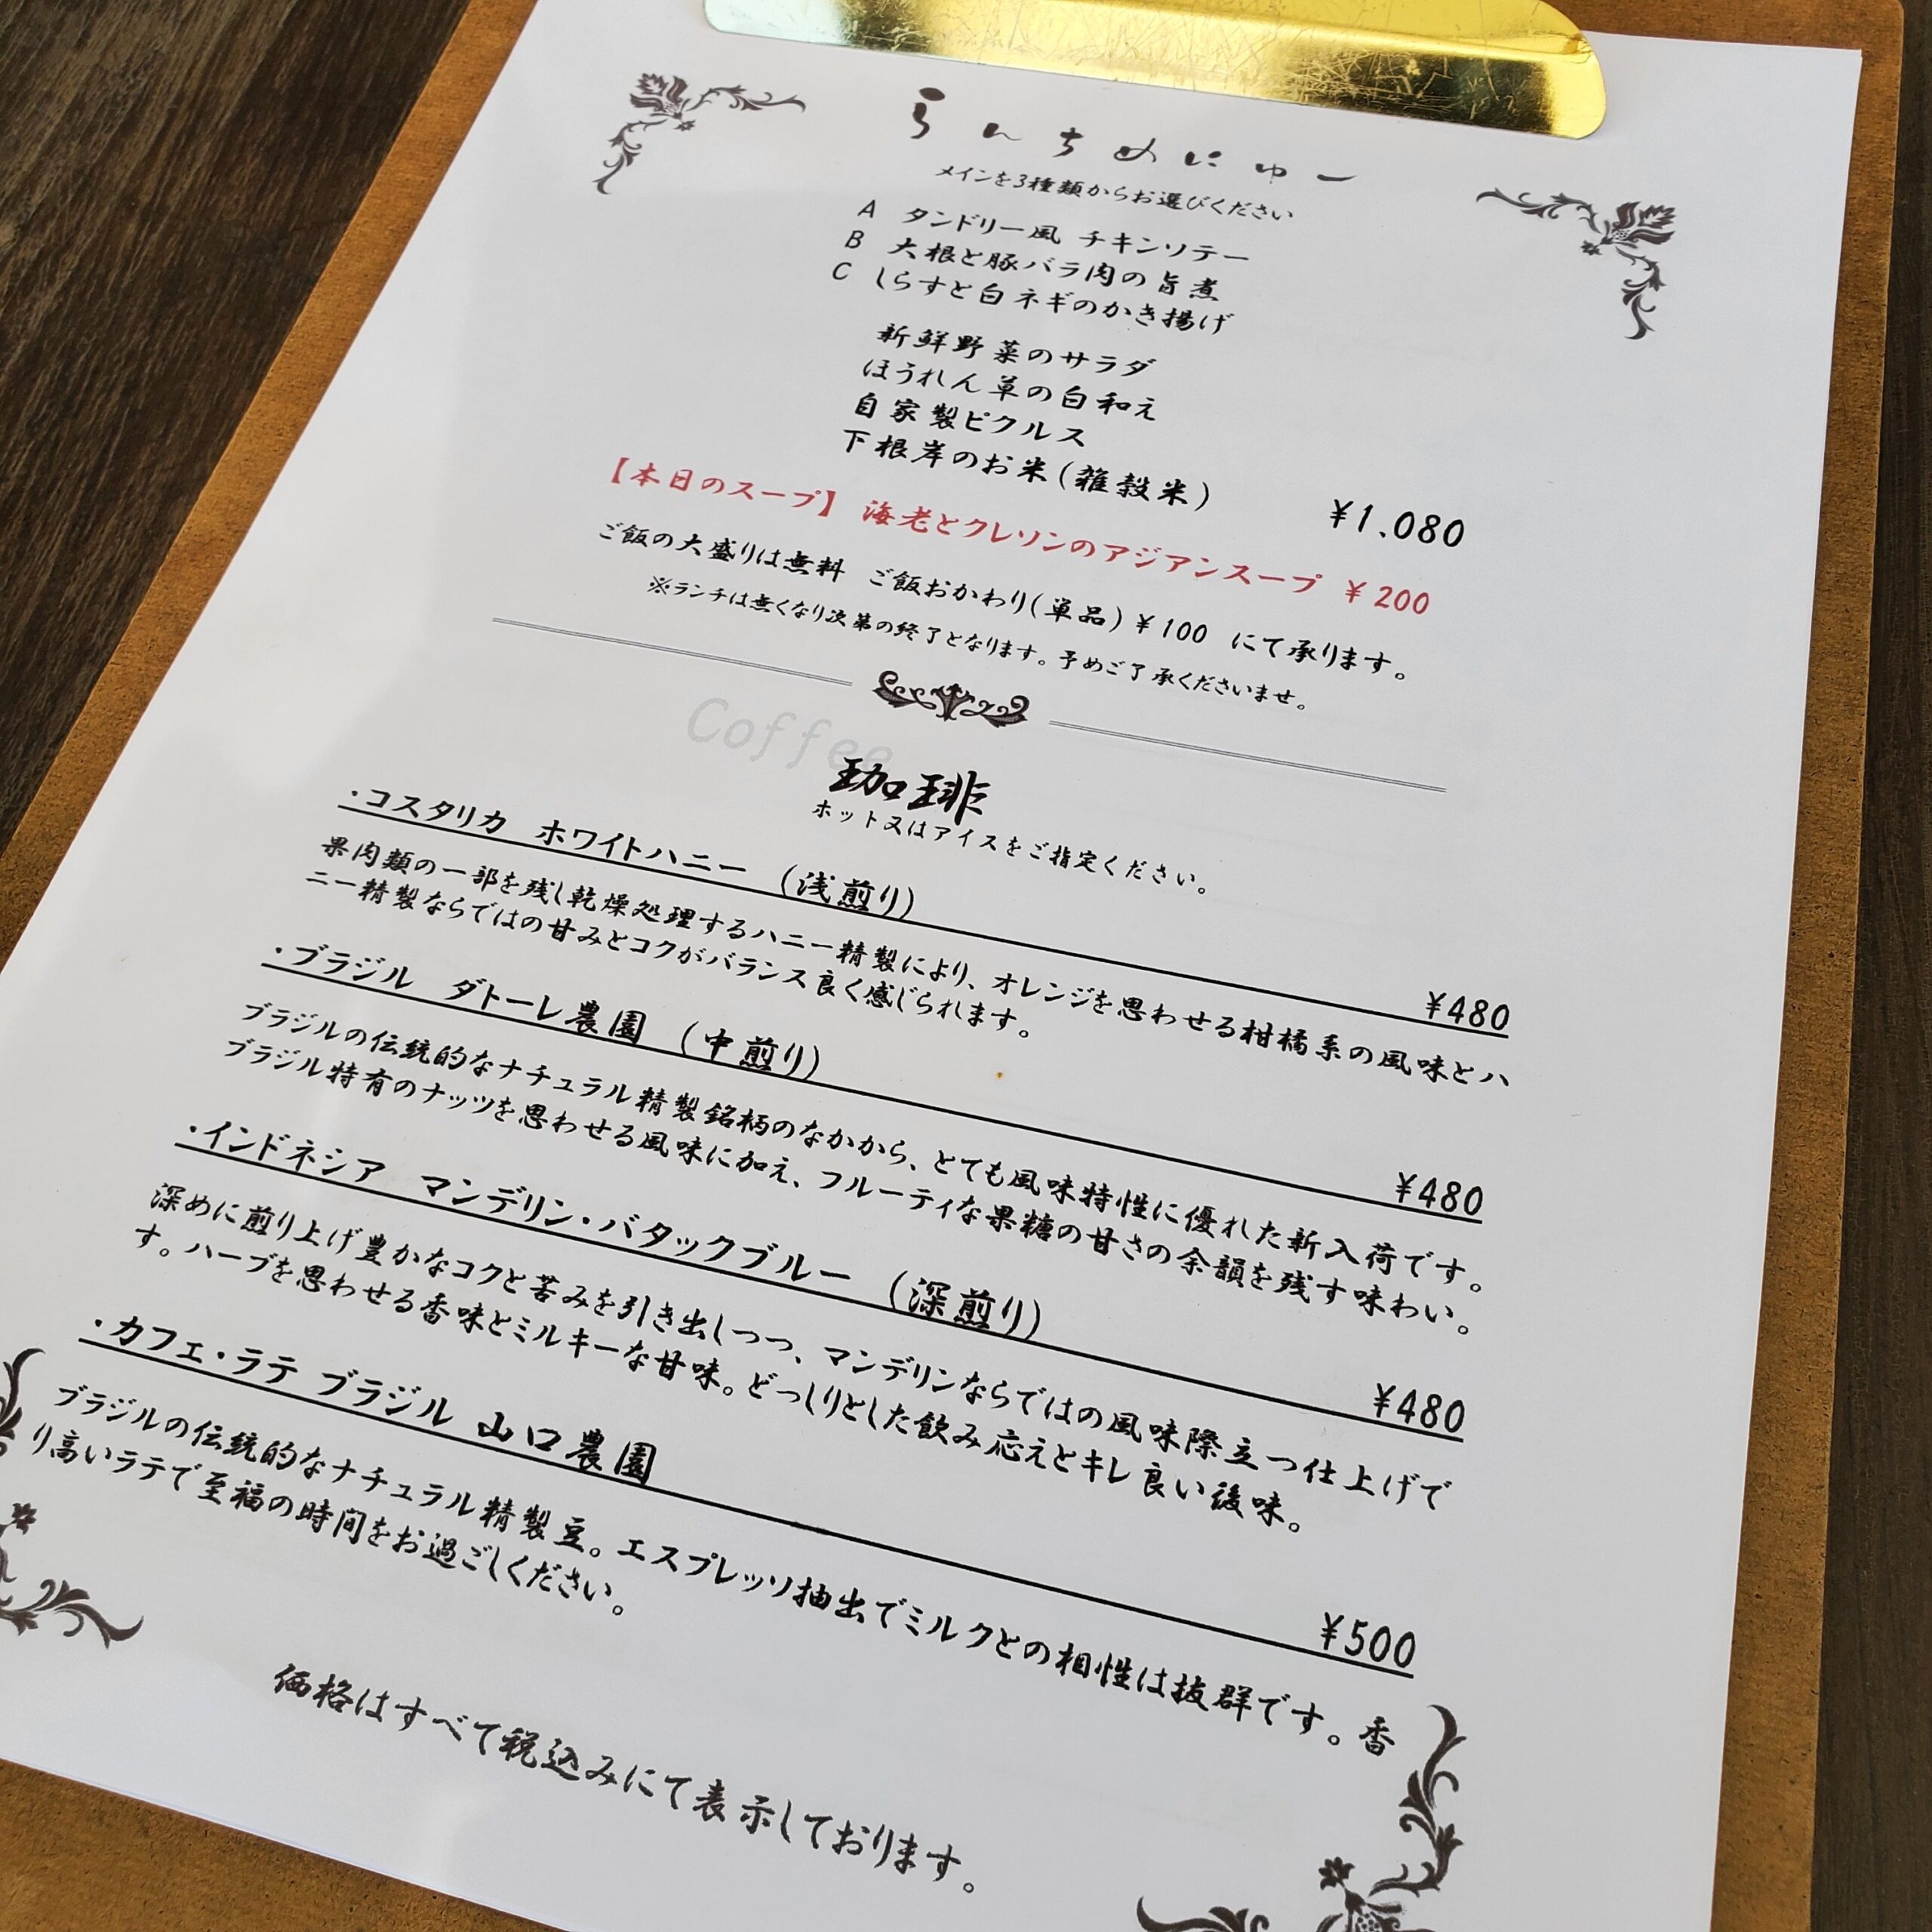 らんちめにゅー
メインを3種類からお選びください
A タンドリー風 チキンソテー
B 大根と豚バラ肉の旨煮
C しらすと白ネギのかき揚げ
新鮮野菜のサラダ
ほうれん草の白和え
自家製ピクルス
下根岸のお米(雑穀米) ¥1.080
【本日のスープ】 海老とクレソンのアジアンスープ ¥200
ご飯の大盛りは無料 ご飯おかわり(単品)¥100 にて承ります。
※ランチは無くなり次第の終了となります。予めご了承くださいませ。
Coffee
珈琲
ホット又はアイスをご指定ください。
・コスタリカ ホワイトハニー (浅煎り) ¥480
果肉類の一部を残し乾燥処理するハニー精製により、オレンジを思わせる柑橘系の風味とハ
ニー精製ならではの甘みとコクがバランス良く感じられます。
・ブラジル ダトーレ農園 (中煎り) ¥480
ブラジルの伝統的なナチュラル精製銘柄のなかから、とても風味特性に優れた新入荷です。
ブラジル特有のナッツを思わせる風味に加え、フルーティな果糖の甘さの余韻を残す味わい。
・インドネシア マンデリン・バタックブルー (深煎り) ¥480
深めに煎り上げ豊かなコクと苦みを引き出しつつ、マンデリンならではの風味際立つ仕上げで
す。ハーブを思わせる香味とミルキーな甘味。どっしりとした飲み応えとキレ良い後味。
・カフェ・ラテ ブラジル 山口農園 ¥500
ブラジルの伝統的なナチュラル精製豆。エスプレッソ抽出でミルクとの相性は抜群です。香
り高いラテで至福の時間をお過ごしください。
価格はすべて税込みにて表示しております。